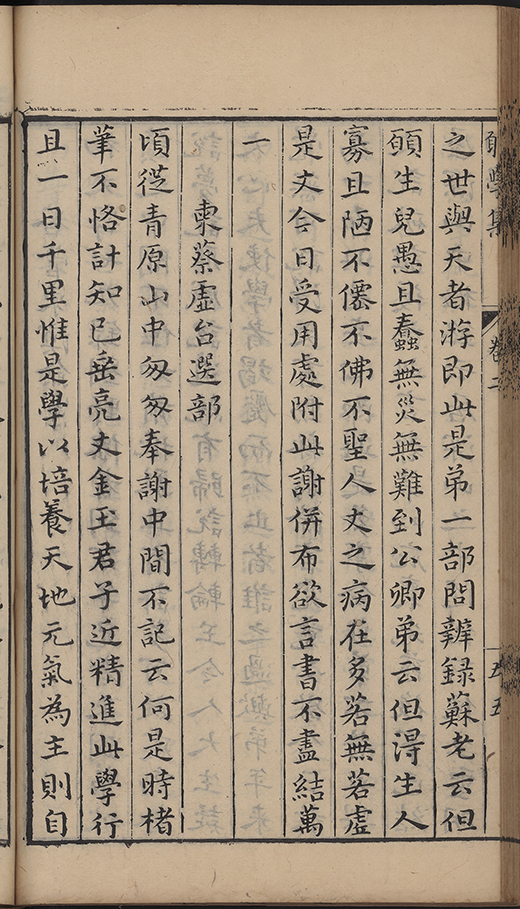 願學集 卷二 五五
之世與天者游即此是弟一部問辨録蘇老云但
願生兒愚且蠢無災無難到公卿弟云但淂生人
寡且陋不僊不佛不聖人丈之病在多若無若虛
是丈今日受用處附此謝併布欲言書不盡結萬
一
柬蔡虛台選部
頃從青原山中匆匆奉謝中間不記云何是時楮
筆不恪計知已垂亮丈金玉君子近精進此學行
且一日千里惟是學以培養天地元氣為主則自